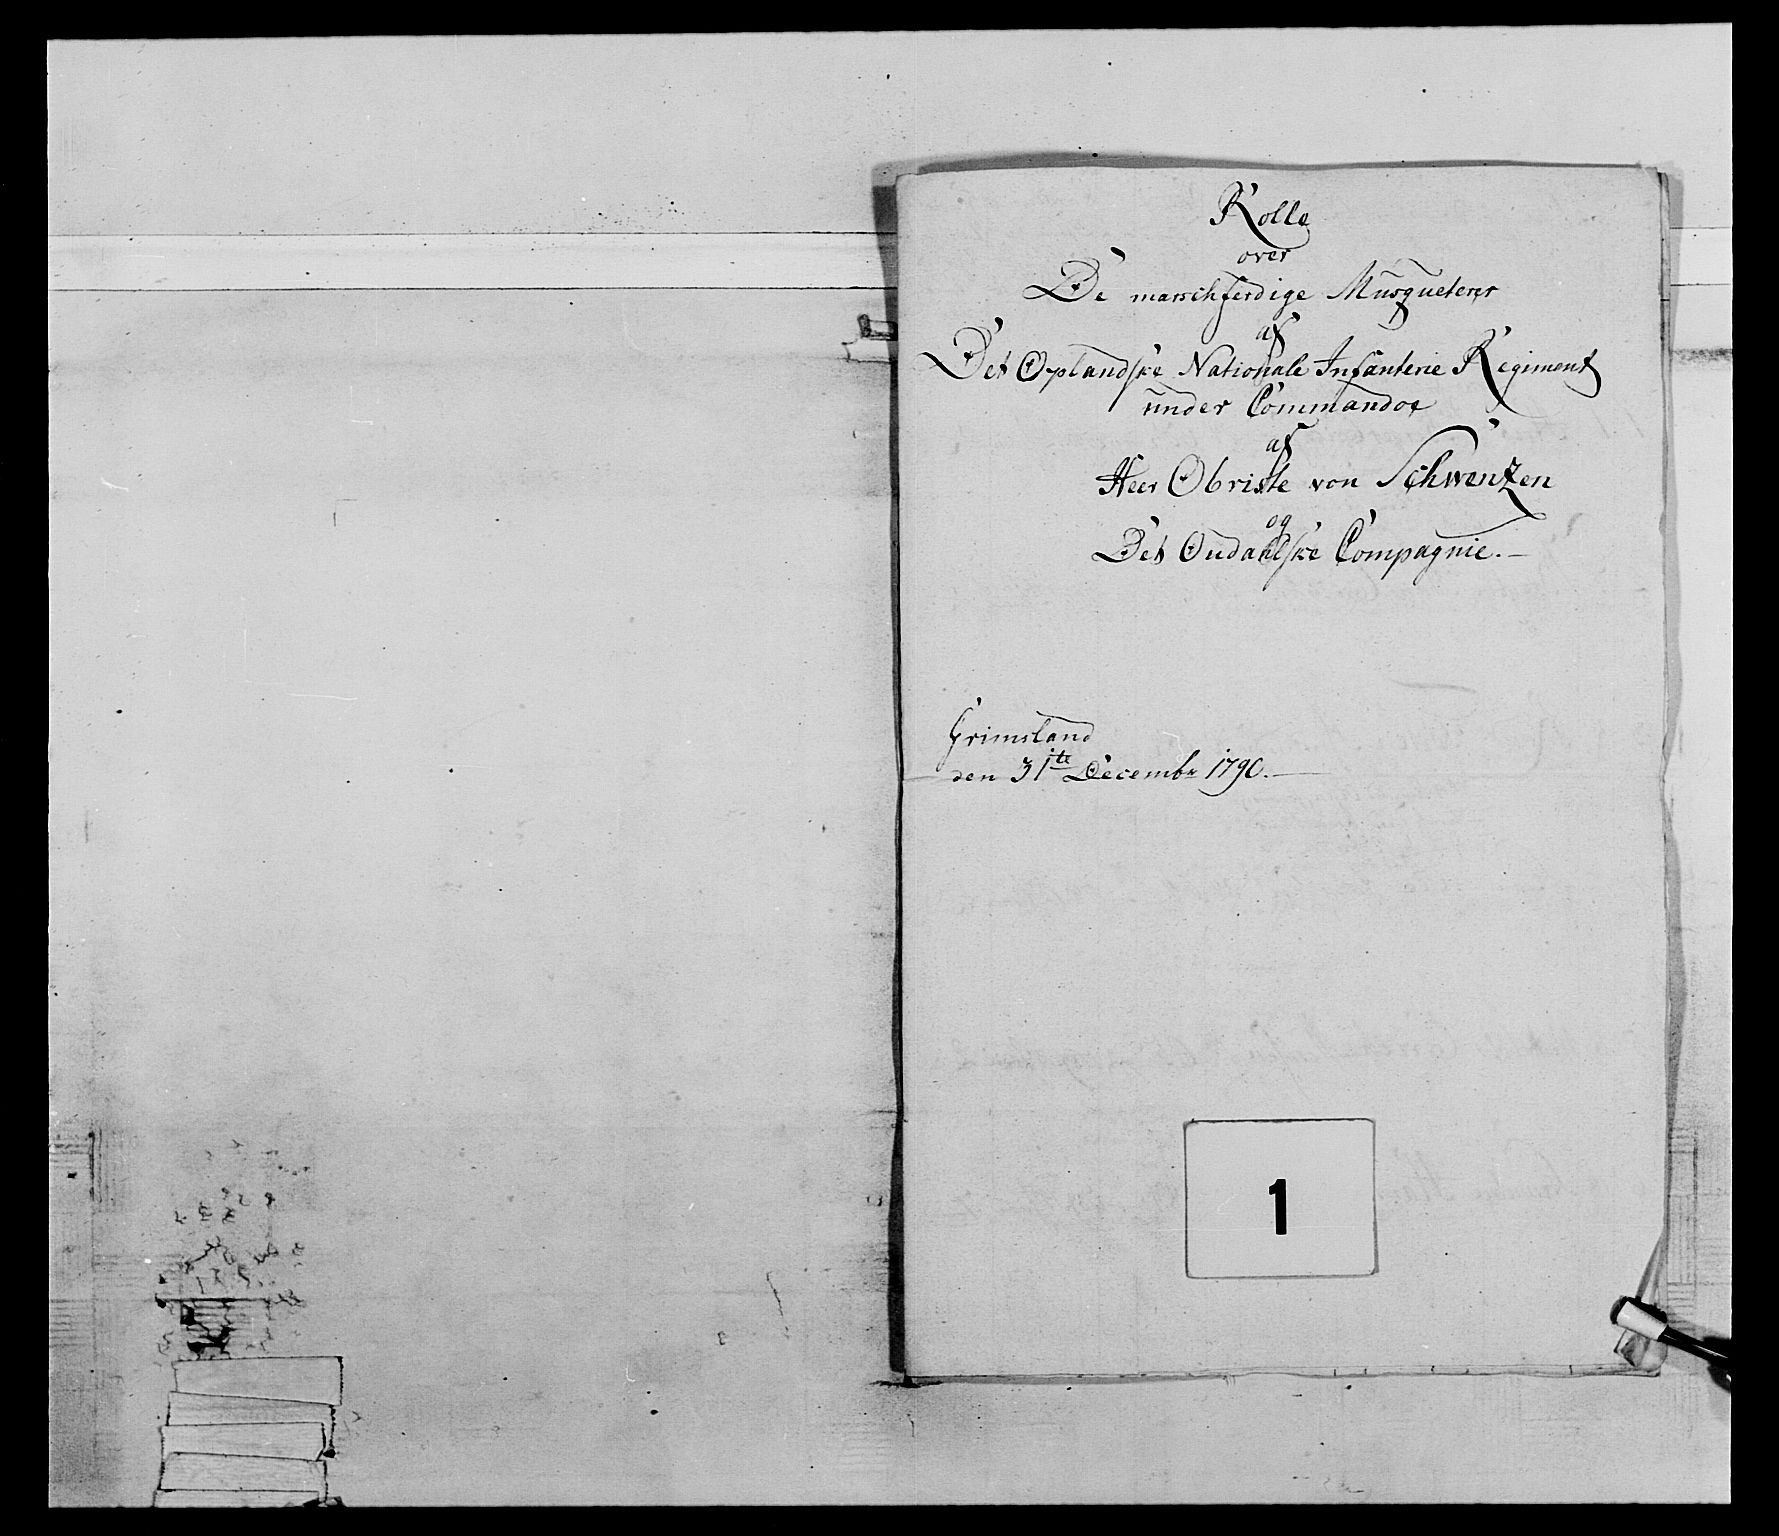 Rolle
over
De marschferdige Musqueterer
af
Det Oplandske Nationale Infanterie Regiment
under Commandoe
af
Herr Obriste von Schwenzen
og
Det Oudahlske Compagnie.
Grimsland
den 31te Decembr 1790.
1